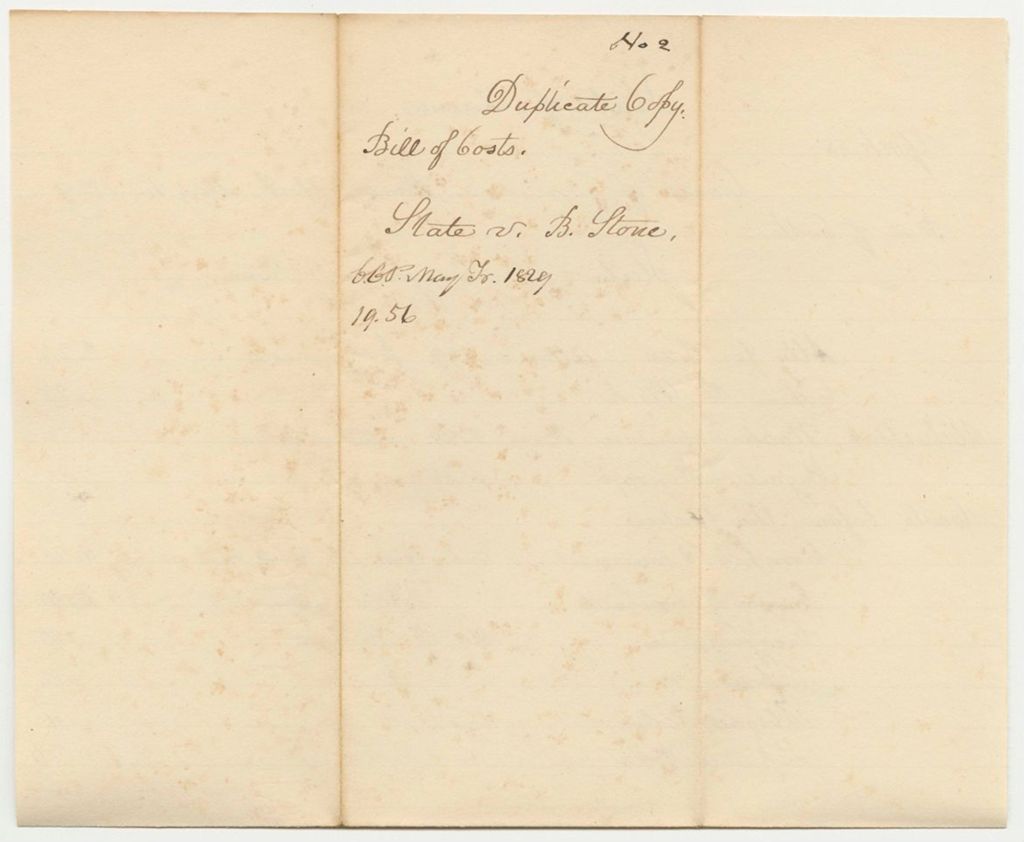 No 2
Duplicate Copy.
Bill of Costs.
State v. B. Stone.
C.C.P. May Tr. 1829
19.56